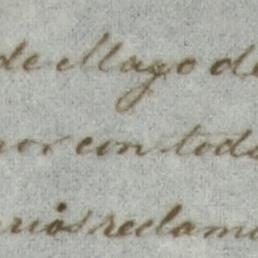 de Mayo de
nor con todo
rios reclama